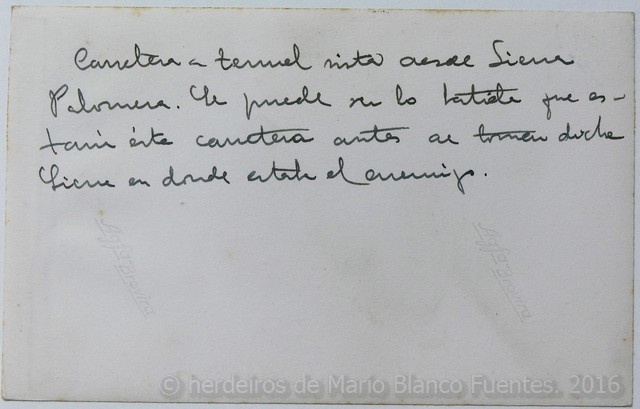 Carretera a teruel vista desde Sierra
Palomera. Se puede ver lo batida que es-
taría ésta carretera antes de tomar dicha
Sierra en donde estaba el enemigo.
Agfa-Brovira
Agfa-Brovira
© herdeiros de Mario Blanco Fuentes. 2016